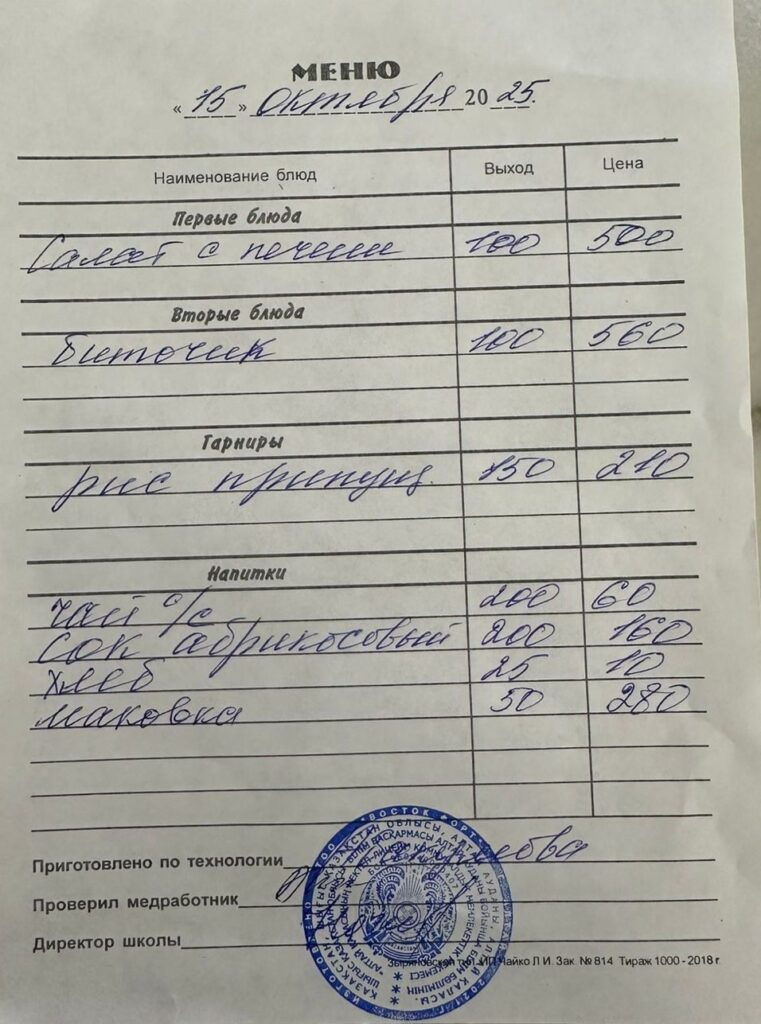 МЕНЮ
« 15 » Октября 20 25.
Наименование блюд Выход Цена
Первые блюда
Салат с печени 100 500
Вторые блюда
Биточик 100 560
Гарниры
рис припущ. 150 210
Напитки
чай с/с 200 60
сок абрикосовый 200 160
хлеб 25 10
маковка 50 280
Приготовлено по технологии
Проверил медработник
Директор школы
Зыряновская тип. ИП Чайко Л И. Зак. № 814 Тираж 1000 - 2018 г.